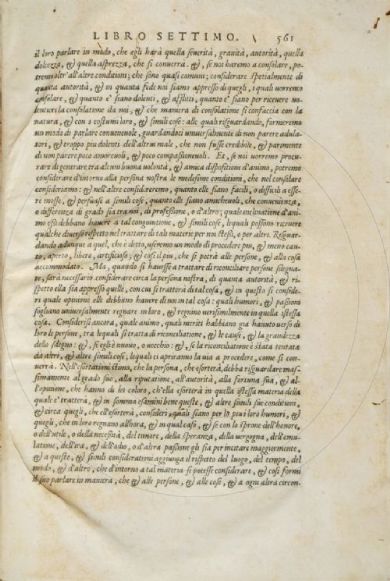 LIBRO SETTIMO. 561
il loro parlare in modo, che egli harà quella seuerità, grauità, autorità, quella
dolcezza, & quella asprezza, che si conuerrà. & se noi haremo a consolare, po-
tremo oltr'all'altre condizioni; che sono quasi comuni; considerare spetialmente di
quanta autorità, & in quanta fede noi siamo appresso di quegli, i quali vorremo
consolare, & quanto e' siano dolenti, & afflitti, quanto e' siano per riceuere vo-
lentieri la consolatione da noi, & che maniera di consolatione si confaccia con la
natura, & con i costumi loro, & simili cose: alle quali risguardando, formeremo
un modo di parlare conueneuole, guardandoci vniuersalmente di non parere adula-
tori, & troppo piu dolenti dell'altrui male, che non fusse credibile, & parimente
di non parere poco amoreuoli, & poco compassioneuoli. Et, se noi vorremo procu-
rare di generare in altrui buona volontà, & amica disposizione d'animo, potremo
considerare d'intorno alla persona nostra le medesime condizioni, che nel consolare
consideriamo: & nell'altre considereremo, quanto elle siano facili, o difficili a esse-
re mosse, & persuase a simili cose, quanto elle siano amicheuoli, che conuenienza,
o differenza di gradi sia tra noi, di professione, o d'altro; quale inclinazione d'ani-
mo esse debbano hauere a tal congiunzione, & simili cose, lequali possono riceuere
qualche diuersi rispetto nel trattare di tal materie per noi stessi, o per altri. Risguar-
dando adunque a quel, che è detto, vseremo un modo di procedere piu, & meno cau-
to, aperto, libero, artificioso, & cosi il piu, che si potrà alle persone, & alle cose
accommodato. Ma, quando si hauesse a trattare di riconciliare persone sdegna-
te, sarà necessario considerare circa la persona nostra, di quanta autorità, & ri-
spetto ella sia appresso quelle, con cui si tratterà di tal cosa, & in questo si conside-
ri quale opinione elle debbano hauere di noi in tal cosa: quali humori, & passioni
sogliano vniuersalmente regnare in loro, & regnino verisimilmente in quella istessa
cosa. Considerisi ancora, quale animo, quali meriti habbiano già hauuto verso di
loro le persone, tra lequali si tratta di riconciliatione, & le cause, & la grandezza
dello sdegno: &, se egli è nuouo, o vecchio: &, se la riconciliatione è stata tentata
da altri, & altre simili cose, lequali ci apriranno la via a procedere, come si con-
uerrà. Nell'esortationi stimo, che la persona, che esorterà, debba risguardare mas-
simamente al grado suo, alla riputazione, all'autorità, alla fortuna sua, & al-
l'opinione, che hanno di lei coloro, ch'ella esorterà in quella istessa materia della
quale e' tratterà, & in somma esamini bene queste, & altre simili sue condizioni,
& circa quegli, che esorterà, consideri, quali siano per lo piu i loro humori, &
quegli, che in loro regnano all'hora, & in qual casi, & se con lo sprone dell'honore,
o dell'utile, o della necessità, del timore, della speranza, della vergogna, dell'emu-
latione, dell'ira, & dell'odio, o d'altra passione gli sia per incitare maggiormente,
& a questo, & simili considerationi aggiunga il rispetto del luogo, del tempo, del
modo, & d'altro, che d'intorno a tal materia si potesse considerare, & cosi formi
il suo parlare in maniera, che & alle persone, & alle cose, & a ogni altra circon-